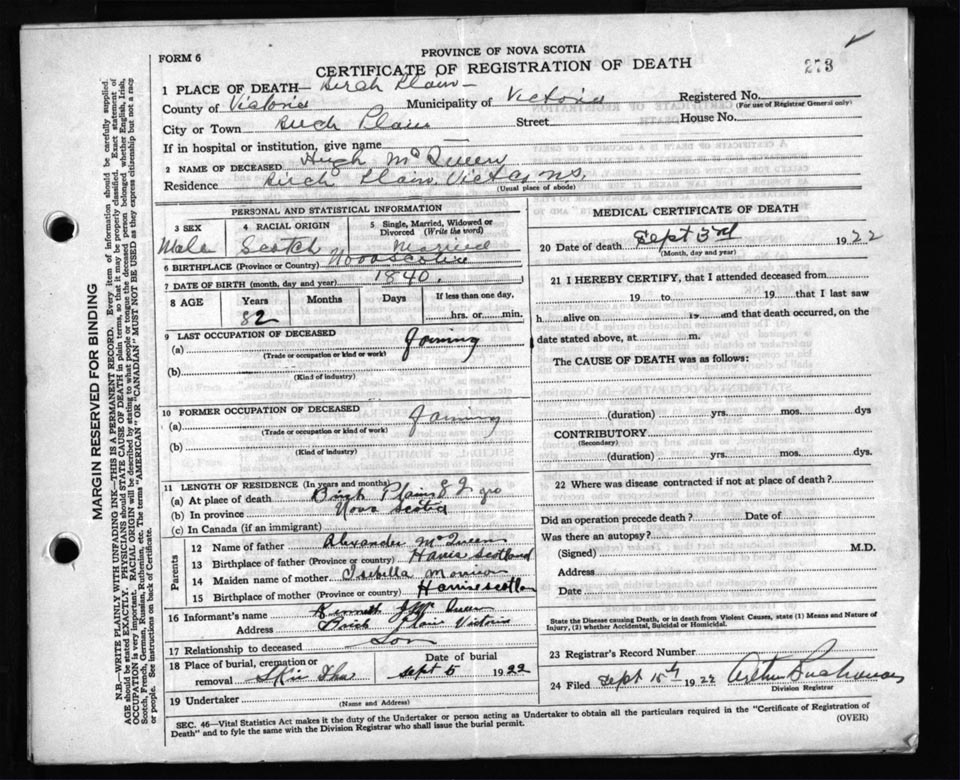 PROVINCE OF NOVA SCOTIA
FORM 6
CERTIFICATE OF REGISTRATION OF DEATH
273
1 PLACE OF DEATH— Birch Plain
County of Victoria Municipality of Victoria Registered No.
(For use of Registrar General only)
City or Town Birch Plain Street House No.
If in hospital or institution, give name
2 NAME OF DECEASED Hugh McQueen
Residence Birch Plain, Victoria N.S.
(Usual place of abode)
PERSONAL AND STATISTICAL INFORMATION
3 SEX
Male
4 RACIAL ORIGIN
Scotch
5 Single, Married, Widowed or Divorced (Write the word)
Married
6 BIRTHPLACE (Province or Country) Nova Scotia
7 DATE OF BIRTH (month, day and year) 1840.
8 AGE Years Months Days If less than one day,
82 hrs. or min.
9 LAST OCCUPATION OF DECEASED
(a) Farming
(Trade or occupation or kind or work)
(b)
(Kind of industry)
10 FORMER OCCUPATION OF DECEASED
(a) Farming
(Trade or occupation or kind of work)
(b)
(Kind of industry)
11 LENGTH OF RESIDENCE (In years and months)
(a) At place of death Birch Plain
(b) In province Nova Scotia
(c) In Canada (if an immigrant)
Parents
12 Name of father Alexander McQueen
13 Birthplace of father (Province or country) Harris Scotland
14 Maiden name of mother Isebella Morrison
15 Birthplace of mother (Province or country) Harris Scotland
16 Informant's name Kenneth J McQueen
Address Birch Plain Victoria
17 Relationship to deceased Son
18 Place of burial, cremation or removal
Date of burial
Sept 5 1922
19 Undertaker
(Name and Address)
MEDICAL CERTIFICATE OF DEATH
20 Date of death Sept 3rd 1922
(Month, day and year)
21 I HEREBY CERTIFY, that I attended deceased from
19 to 19 that I last saw
h alive on 19 and that death occurred, on the
date stated above, at m.
The CAUSE OF DEATH was as follows:
(duration) yrs. mos. dys
CONTRIBUTORY
(Secondary)
(duration) yrs. mos. dys.
22 Where was disease contracted if not at place of death?
Did an operation precede death? Date of
Was there an autopsy?
(Signed) M.D.
Address
Date
State the Disease causing Death, or in death from Violent Causes, state (1) Means and Nature of
Injury, (2) whether Accidental, Suicidal or Homicidal.
23 Registrar's Record Number
24 Filed Sept 15th 1922 Arthur Buchanan
Division Registrar
SEC. 46—Vital Statistics Act makes it the duty of the Undertaker or person acting as Undertaker to obtain all the particulars required in the "Certificate of Registration of
Death" and to fyle the same with the Division Registrar who shall issue the burial permit.
(OVER)
MARGIN RESERVED FOR BINDING
N.B.—WRITE PLAINLY WITH UNFADING INK—THIS IS A PERMANENT RECORD. Every item of information should be carefully supplied.
AGE should be stated EXACTLY. PHYSICIANS should STATE CAUSE OF DEATH in plain terms, so that it may be properly classified. Exact statement of
OCCUPATION is very important. RACIAL ORIGIN will be described by stating to what people or tongue the deceased person belonged whether English, Irish,
Scotch, French, German, Russian, Ruthenian, etc. The terms "AMERICAN" OR "CANADIAN" MUST NOT BE USED as they express citizenship but not a race
or people. See instructions on back of Certificate.